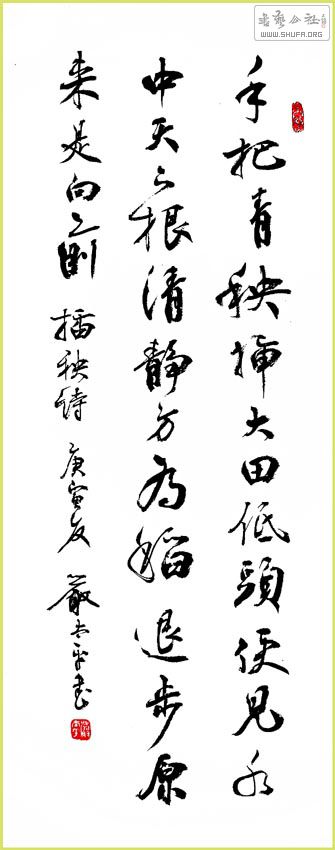 书艺公社
WWW.SHUFA.ORG
手把青秧插大田低頭便見水
中天六根清靜方为稻退步原
来是向前 插秧詩 庚寅夏 嚴 书